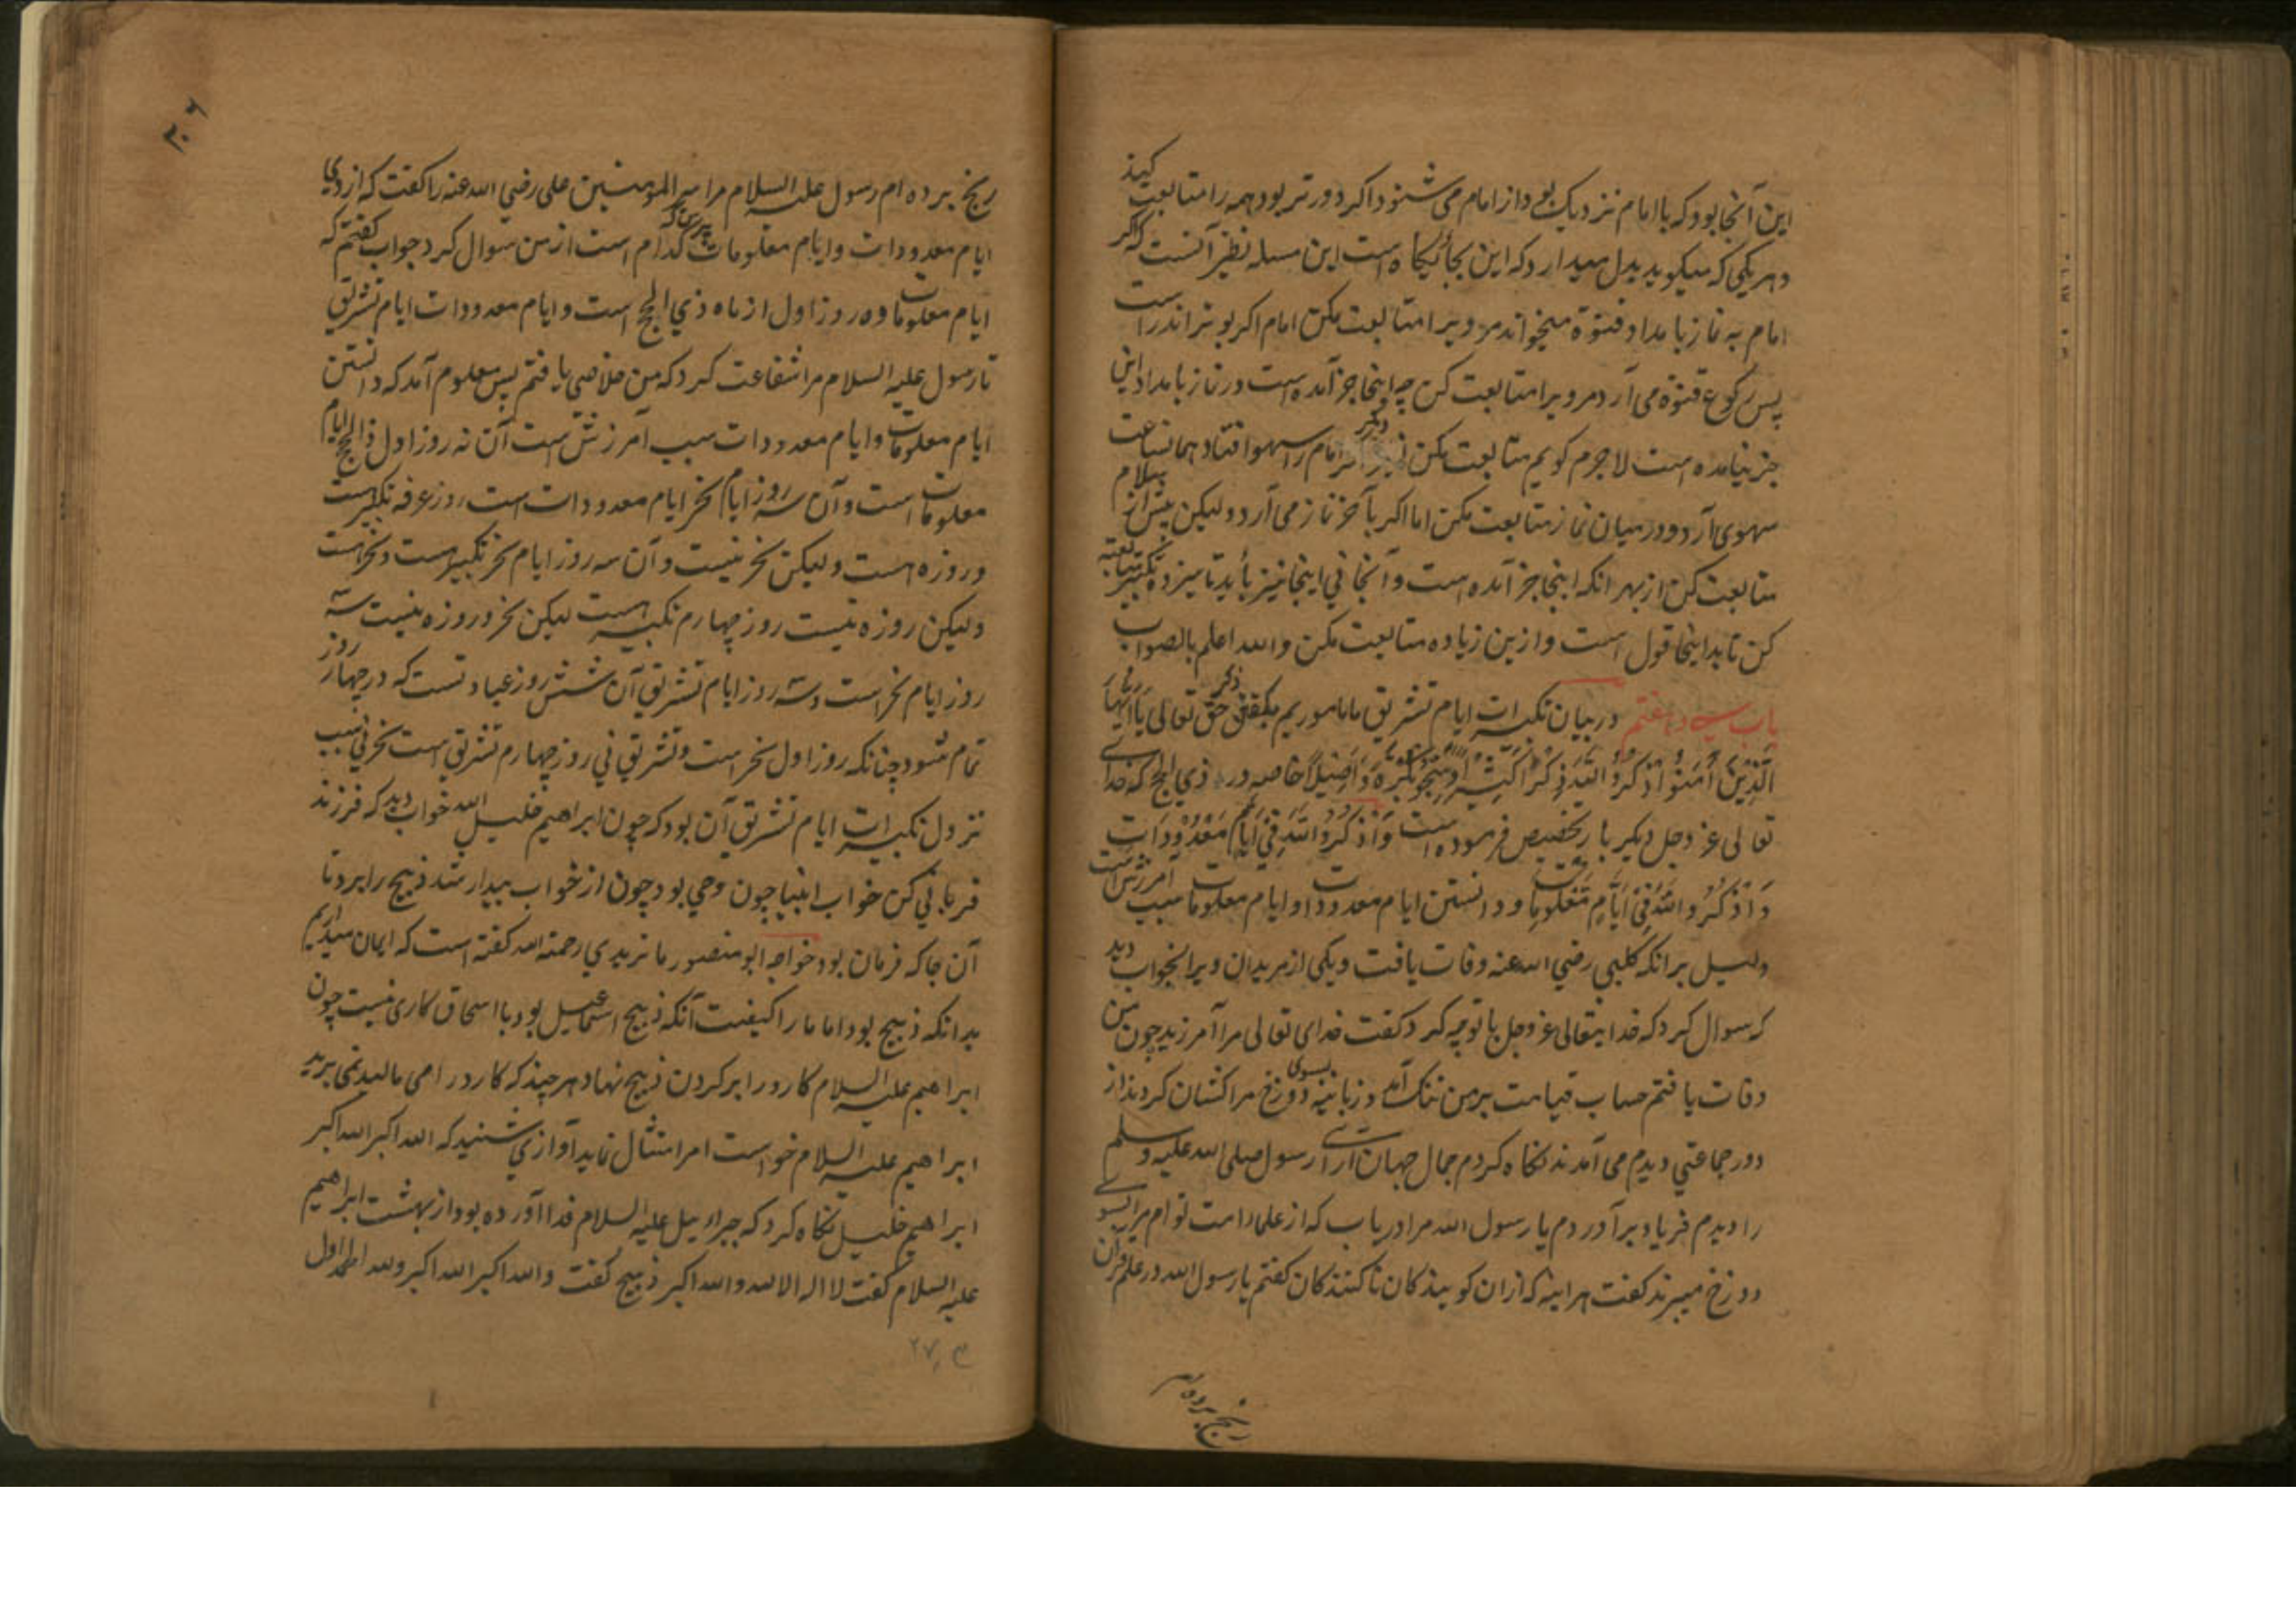 این آنجا بود که با امام نزدیک بود و از امام می شنود اگر دورتر بود همه را متابعت کند
و هر یکی که میگوید بدل میدارد که این بجایگاه است این مسله نظیر آنست که اگر
امام به نماز بامداد قنوة میخواند مر ویرا متابعت مکن امام اگر بوتر اندر است
پس رکوع قنوة می آرد مر ویرا متابعت کن چه اینجا خبر آمده است و در نماز بامداد این
خبر نیامده است لاجرم گویم متابعت مکن دیگر اگر امام را سهو افتاد همانساعت
سهوی آرد و در میان نماز متابعت مکن اما اگر بآخر نماز می آرد ولیکن پیش از سلام
متابعت کن از بهر انکه اینجا خبر آمده است و آنجا نی اینجا نیز بأید تا سیزده تکبیر متابعة
کن تا بدا اینجا قول است و ازین زیاده متابعت مکن والله اعلم بالصواب
باب سی و هفتم در بیان تکبیرات ایام تشریق ما ماموریم بگفتن ذکر حق تعالی یا ایها
الذین امنوا اذکروا الله ذکرا کثیرا وسبحوه بکرة واصیلا خاصه در ذی الحج که خدای
تعالی عز وجل دیگر بار تخصیص فرموده است واذکروا الله فی ایام معدودات
واذکروا الله فی ایام معلومات و دانستن ایام معدودات و ایام معلومات سبب آمرزش است
دلیل برانکه کلبی رضی الله عنه وفات یافت و یکی از مریدان ویرا بخواب دید
که سوال کرد که خدایتعالی عز وجل با تو چه کرد گفت خدای تعالی مرا آمرزید چون من
وفات یافتم حساب قیامت بر من تنک آمد و زبانیه بسوی دوزخ مرا کشان کردند از
دور جماعتی دیدم می آمدند نکاه کردم جمال جهان آرای رسول صلی الله علیه وسلم
را دیدم فریاد برآوردم یا رسول الله مرا دریاب که از علما امت توام مرا بسوی
دوزخ میبرند گفت هر اینه که ازان گویندگان نا کنندگان گفتم یا رسول الله در علم قران
رنج برده
۳۰۶
رنج برده ام رسول علیه السلام مر امیر المومنین علی رضی الله عنه را گفت که از وی
ایام معدودات و ایام معلومات پرس که کدام است از من سوال کرد جواب گفتم که
ایام معلومات ده روز اول از ماه ذی الحج است و ایام معدودات ایام تشریق
تا رسول علیه السلام مرا شفاعت کرد که من خلاصی یافتم پس معلوم آمد که دانستن
ایام معلومات و ایام معدودات سبب آمرزش است آن نه روز اول ذالحج ایام
معلومات است و آن سه روز ایام نحر ایام معدودات است روز عرفه تکبیر است
و روزه است ولیکن نحر نیست و آن سه روز ایام نحر تکبیر است و نحر است
ولیکن روزه نیست روز چهارم تکبیر است لیکن نحر و روزه نیست سه
روز ایام نحر است و سه روز ایام تشریق آن شش روز عبادتست که در چهار روز
تمام شود چنانکه روز اول نحر است و تشریق نی روز چهارم تشریق است نحر نی سبب
نزول تکبیرات ایام تشریق آن بود که چون ابراهیم خلیل الله خواب دید که فرزند
قربانی کن خواب انبیا چون وحی بود چون از خواب بیدار شد ذبیح را برد تا
آن جا که فرمان بود خواجه ابو منصور ماتریدی رحمة الله گفته است که ایمان میداریم
بدانکه ذبیح بود اما ما را کیفیت آنکه ذبیح اسمعیل بود با اسحاق کاری نیست چون
ابراهیم علیه السلام کارد را بر گردن ذبیح نهاد هر چند که کارد را می مالید نمی برید
ابراهیم علیه السلام خواست امر امتثال نماید آوازی شنید که الله اکبر الله اکبر
ابراهیم خلیل نکاه کرد که جبرائیل علیه السلام فدا آورده بود از بهشت ابراهیم
علیه السلام گفت لا اله الا الله والله اکبر ذبیح گفت والله اکبر الله اکبر ولله الحمد اول